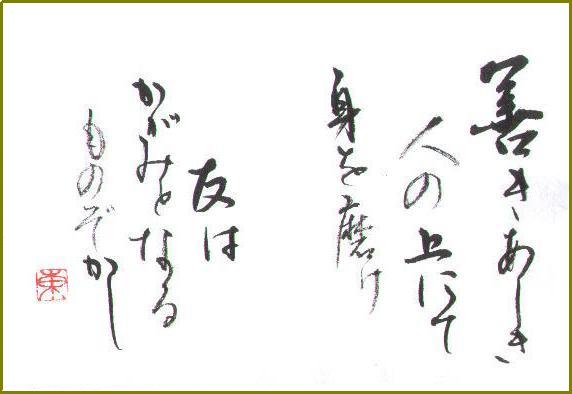 善きあしき
人の上にて
身を磨け
友は
かがみと なる
ものぞかし
東